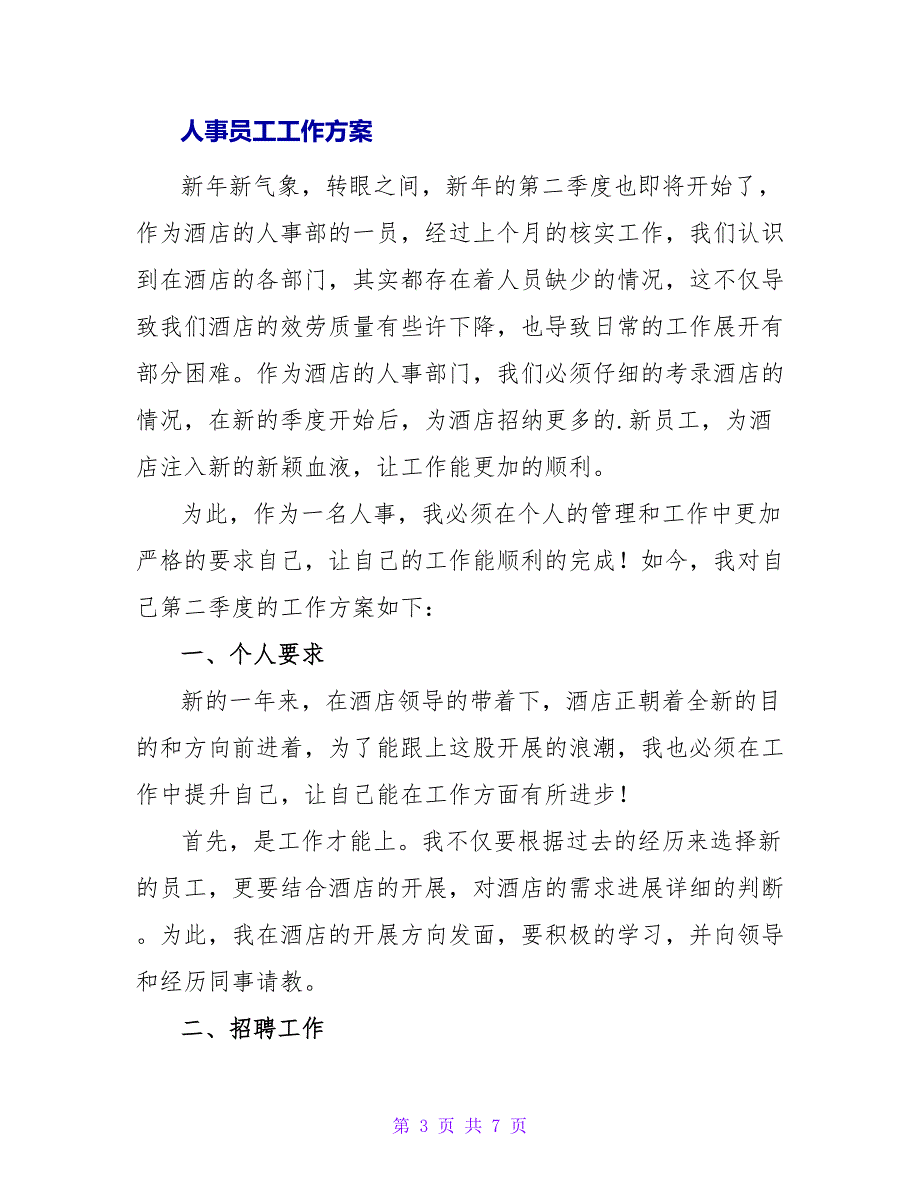 人事员工工作方案
新年新气象，转眼之间，新年的第二季度也即将开始了，
作为酒店的人事部的一员，经过上个月的核实工作，我们认识
到在酒店的各部门，其实都存在着人员缺少的情况，这不仅导
致我们酒店的效劳质量有些许下降，也导致日常的工作展开有
部分困难。作为酒店的人事部门，我们必须仔细的考录酒店的
情况，在新的季度开始后，为酒店招纳更多的.新员工，为酒
店注入新的新颖血液，让工作能更加的顺利。
为此，作为一名人事，我必须在个人的管理和工作中更加
严格的要求自己，让自己的工作能顺利的完成！如今，我对自
己第二季度的工作方案如下：
一、个人要求
新的一年来，在酒店领导的带着下，酒店正朝着全新的目
的和方向前进着，为了能跟上这股开展的浪潮，我也必须在工
作中提升自己，让自己能在工作方面有所进步！
首先，是工作才能上。我不仅要根据过去的经历来选择新
的员工，更要结合酒店的开展，对酒店的需求进展详细的判断
。为此，我在酒店的开展方向发面，要积极的学习，并向领导
和经历同事请教。
二、招聘工作
第 3 页 共 7 页